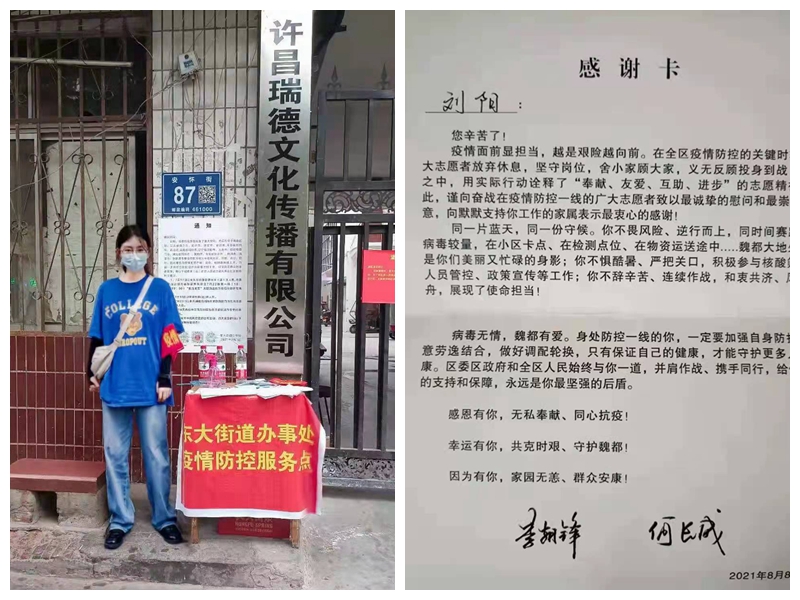 许昌瑞德文化传播有限公司
安怀街
87
邮政编码 461000
通知
COLLEGE
DROPOUT
东大街道办事处
疫情防控服务点
感谢卡
刘阳：
您辛苦了！
疫情面前显担当，越是艰险越向前。在全区疫情防控的关键时
大志愿者放弃休息，坚守岗位，舍小家顾大家，义无反顾投身到战
之中，用实际行动诠释了“奉献、友爱、互助、进步”的志愿精
此，谨向奋战在疫情防控一线的广大志愿者致以最诚挚的慰问和最崇
意，向默默支持你工作的家属表示最衷心的感谢！
同一片蓝天，同一份守候。你不畏风险、逆行而上，同时间赛
病毒较量，在小区卡点、在检测点位、在物资运送途中……魏都大地
是你们美丽又忙碌的身影；你不惧酷暑、严把关口，积极参与核酸
人员管控、政策宣传等工作；你不辞辛苦、连续作战，和衷共济、
舟，展现了使命担当！
病毒无情，魏都有爱。身处防控一线的你，一定要加强自身防
意劳逸结合，做好调配轮换，只有保证自己的健康，才能守护更多
康。区委区政府和全区人民始终与你一道，并肩作战、携手同行，给
的支持和保障，永远是你最坚强的后盾。
感恩有你，无私奉献、同心抗疫！
幸运有你，共克时艰、守护魏都！
因为有你，家园无恙、群众安康！
何长成
2021年8月8